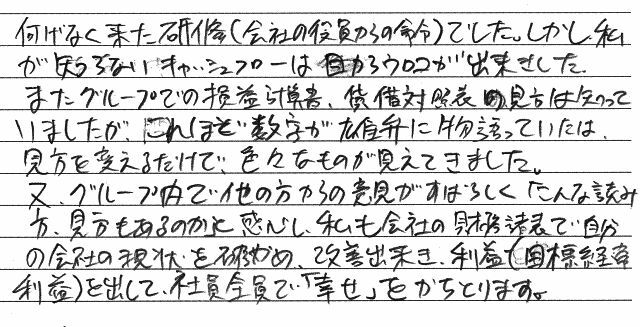 何げなく来た研修(会社の役員からの命令)でした。しかし、私
が知らないキャッシュフローは目からウロコが出来ました。
またグループでの損益計算書、貸借対照表の見方は知って
いましたが、これほど数字が雄弁に物語っていたは、
見方を変えるだけで、色々なものが見えてきました。
又、グループ内で他の方からの意見がすばらしくこんな読み
方、見方もあるのかと感心し、私も会社の財務諸表で自分
の会社の現状を見極め、改善出来き、利益(目標経常
利益)を出して、社員全員で「幸せ」をかちとります。